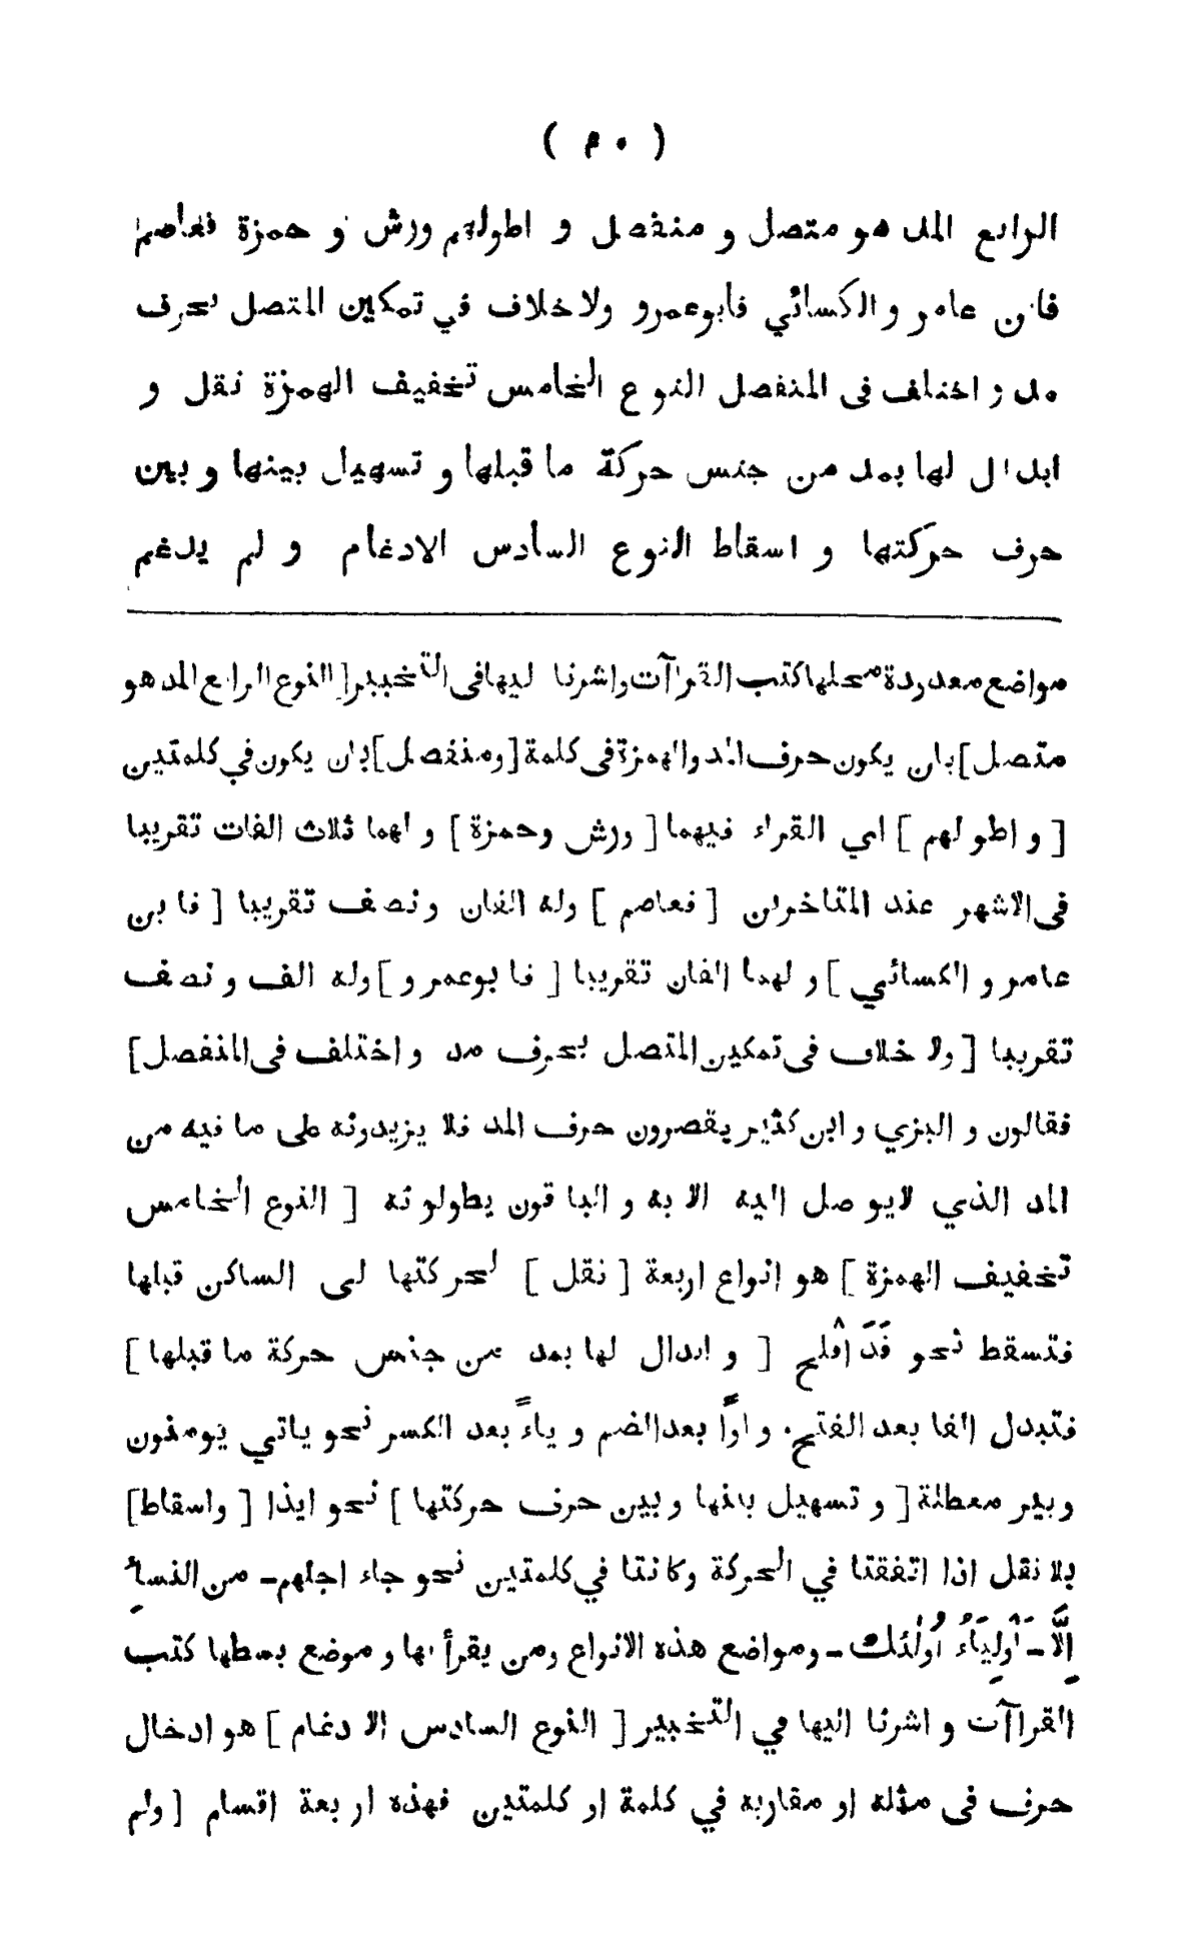 ( ٤٠ )
الرابع المد هو متصل و منفصل و اطولهم ورش و حمزة فعاصم
فابن عامر و الكسائي فابوعمرو ولا خلاف في تمكين المتصل بحرف
مد و اختلف فى المنفصل النوع الخامس تخفيف الهمزة نقل و
ابدال لها بمد من جنس حركة ما قبلها و تسهيل بينها و بين
حرف حركتها و اسقاط النوع السادس الادغام و لم يدغم
مواضع معدودة محلها كتب القراآت واشرنا ليهافى التخبير [ النوع الرابع المد هو
متصل ] بان يكون حرف المد والهمزة فى كلمة [ ومنفصل ] بان يكون في كلمتين
[ و اطولهم ] اي القراء فيهما [ ورش وحمزة ] و لهما ثلاث الفات تقريبا
فى الاشهر عند المتاخرين [ فعاصم ] وله الفان ونصف تقريبا [ فابن
عامر و الكسائي ] و لهما الفان تقريبا [ فابوعمرو ] وله الف و نصف
تقريبا [ ولا خلاف فى تمكين المتصل بحرف مد و اختلف فى المنفصل ]
فقالون و البزي و ابن كثير يقصرون حرف المد فلا يزيدونه على ما فيه من
المد الذي لايوصل اليه الا به و الباقون يطولونه [ النوع الخامس
تخفيف الهمزة ] هو انواع اربعة [ نقل ] لحركتها لى الساكن قبلها
فتسقط نحو قَدَ افلح [ و ابدال لها بمد من جنس حركة ما قبلها ]
فتبدل الفا بعد الفتح و اواً بعد الضم و ياءً بعد الكسر نحو ياتي يومنون
وبير معطلة [ و تسهيل بينها وبين حرف حركتها ] نحو ايذا [ واسقاط ]
بلا نقل اذا اتفقتا في الحركة وكانتا في كلمتين نحو جاء اجلهم - من النساءِ
اِلَّا - اَوْلِيَاءُ اُولٰئك - ومواضع هذه الانواع ومن يقرأ بها و موضع بسطها كتب
القراآت و اشرنا اليها في التخبير [ النوع السادس الا دغام ] هو ادخال
حرف فى مثله او مقاربه في كلمة او كلمتين فهذه اربعة اقسام [ ولم